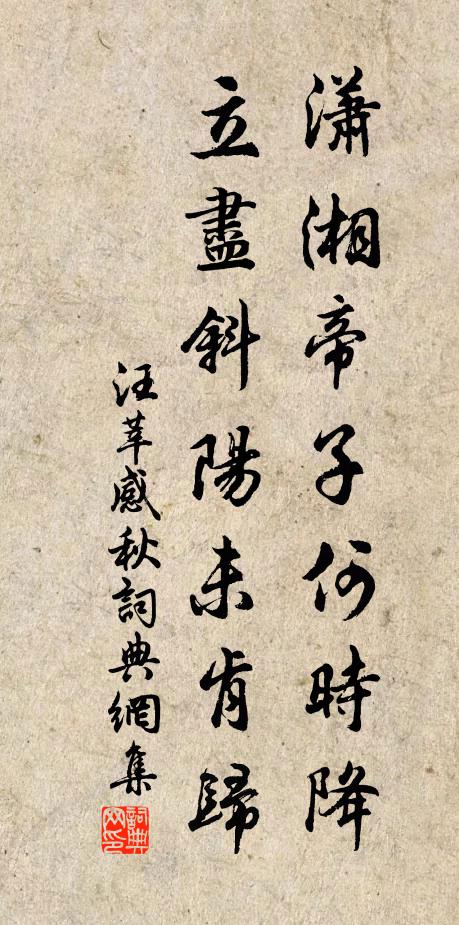 瀟湘帝子何時降
立盡斜陽未肯歸
汪莘感秋詞典網集
詞典網印